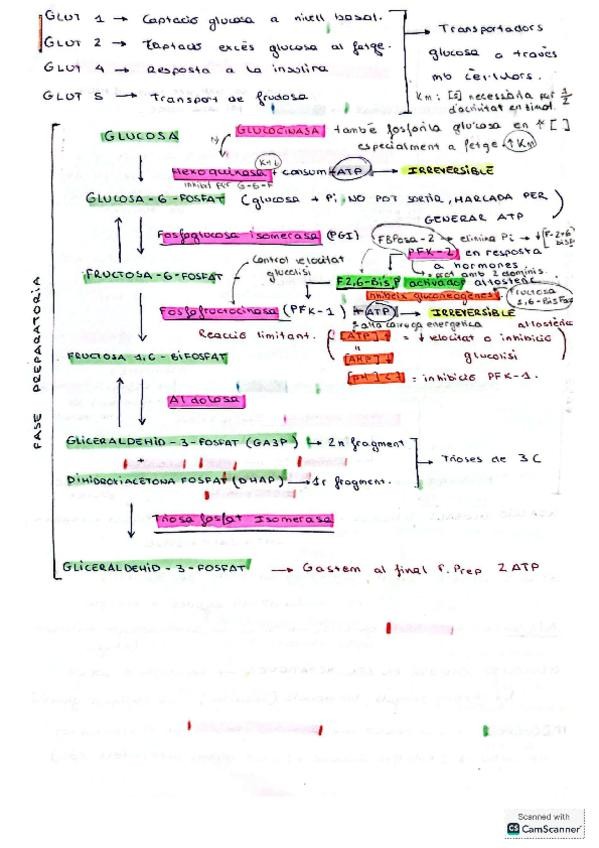 GLUT 1 → Captació glucosa a nivell basal.
GLUT 2 → Captació excés glucosa al fetge.
GLUT 4 → Resposta a la insulina
GLUT 5 → Transport de fructosa
→ Transportadors
glucosa a través
mb cel·lulars.
Km: [S] necessària per 1/2
d'activitat enzimàt.
FASE PREPARATORIA
GLUCOSA
GLUCOCINASA també fosforila glucosa en ↑[ ]
especialment a fetge. ↑Km
Hexoquinasa + consum ATP → IRREVERSIBLE
Km↓
inhibit per G-6-P
GLUCOSA-6-FOSFAT (glucosa + Pi NO POT SORTIR, MARCADA PER
GENERAR ATP)
Fosfoglucosa isomerasa (PGI)
FBPasa-2 → elimina Pi → ↓[F-2,6
bisP]
PFK-2 en resposta
a hormones.
prot amb 2 dominis.
FRUCTOSA-6-FOSFAT
Control velocitat
glucòlisi
F2,6-BisP activador al·lostèric
inhibeix gluconeogènesi.
fructosa
1,6-BisFosf
Fosfofructocinasa (PFK-1) + ATP → IRREVERSIBLE
Reacció limitant.
alta càrrega energètica
al·lostèric
[ATP]↑ = ↓ velocitat o inhibició
[AMP]↓
glucòlisi
= inhibició PFK-1.
FRUCTOSA 1,6-BIFOSFAT
Aldolasa
GLICERALDEHID-3-FOSFAT (GA3P) → 2n fragment
+
DIHIDROXIACETONA FOSFAT (DHAP) → 1r fragment.
→ Trioses de 3C
Triosa fosfat Isomerasa
GLICERALDEHID-3-FOSFAT → Gastem al final F. Prep 2 ATP
Scanned with
CS CamScanner